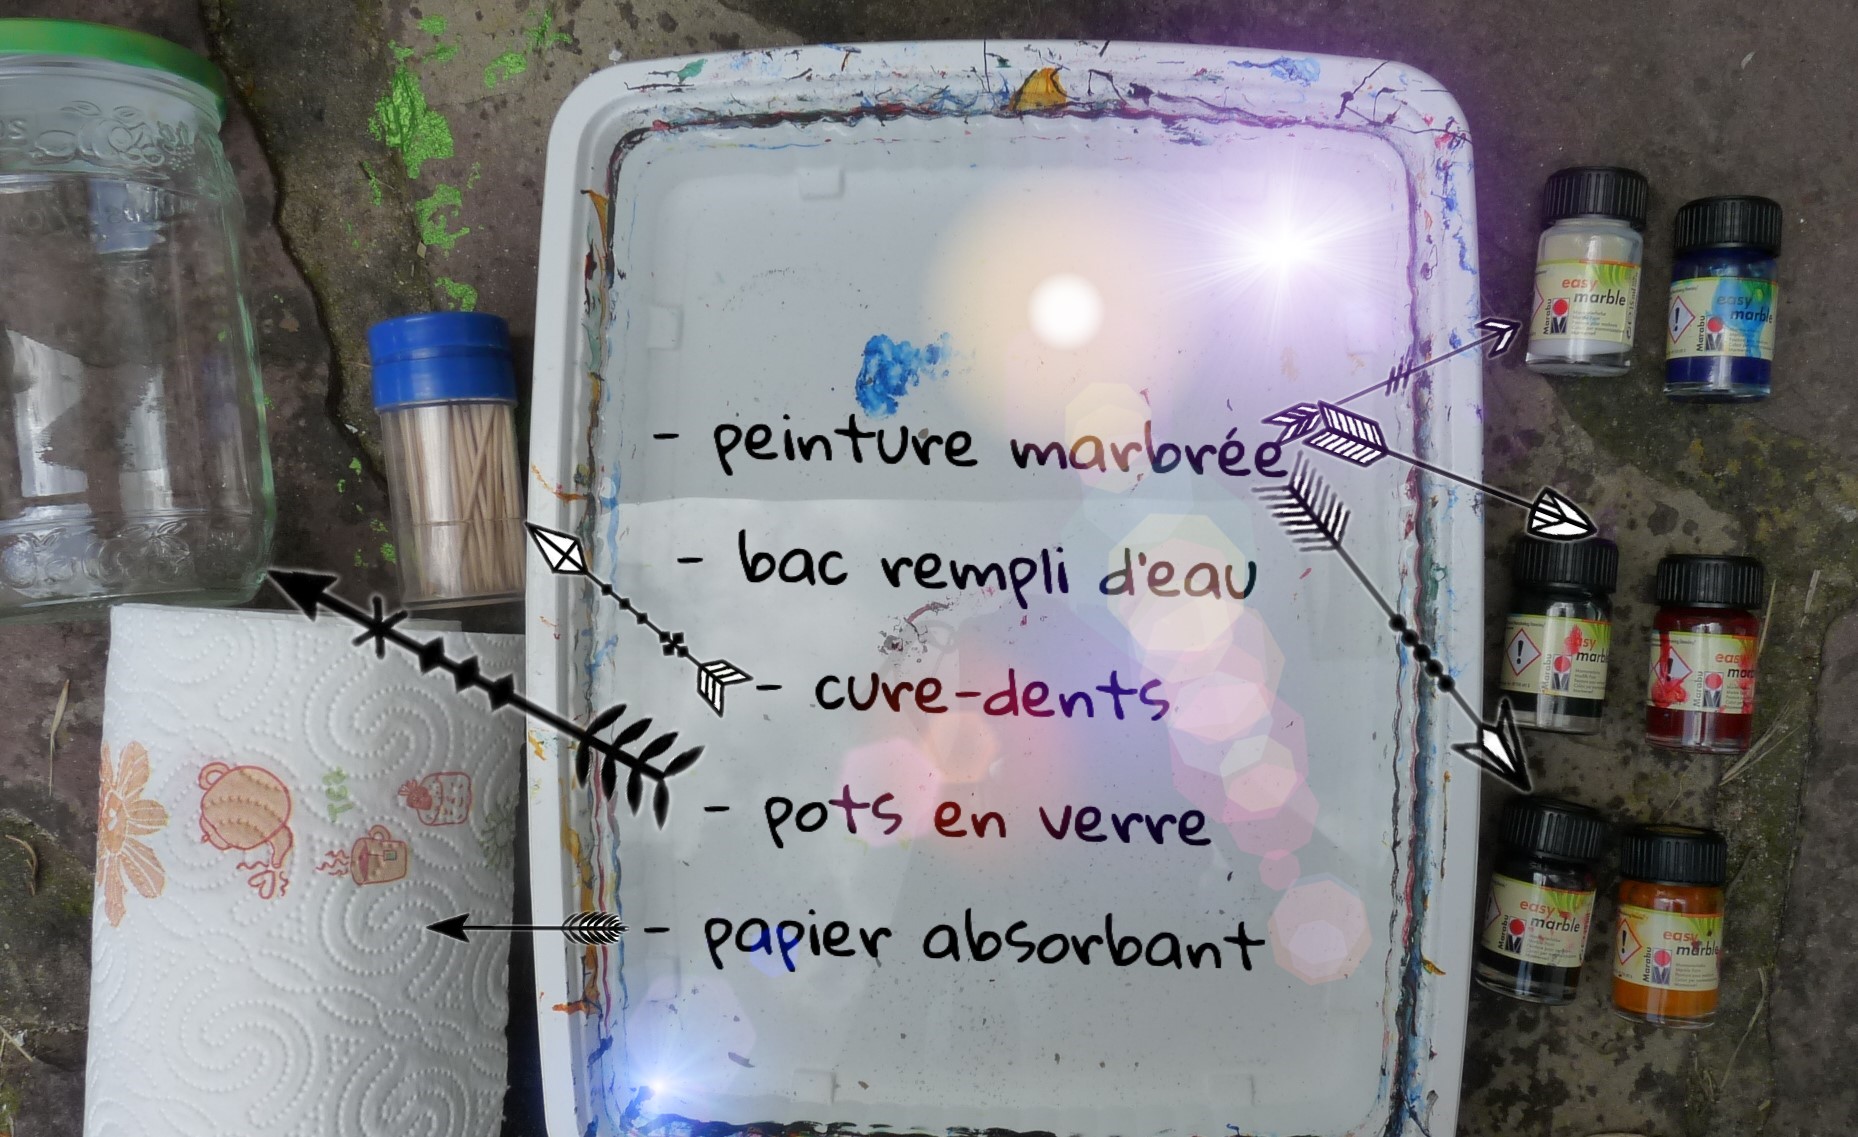 - peinture marbrée
- bac rempli d'eau
- cure-dents
- pots en verre
- papier absorbant
easy
marble
Marabu
easy
marble
Marabu
easy
Marabu
easy
Marabu
easy
marble
Marabu
easy
marble
Marabu
TEA